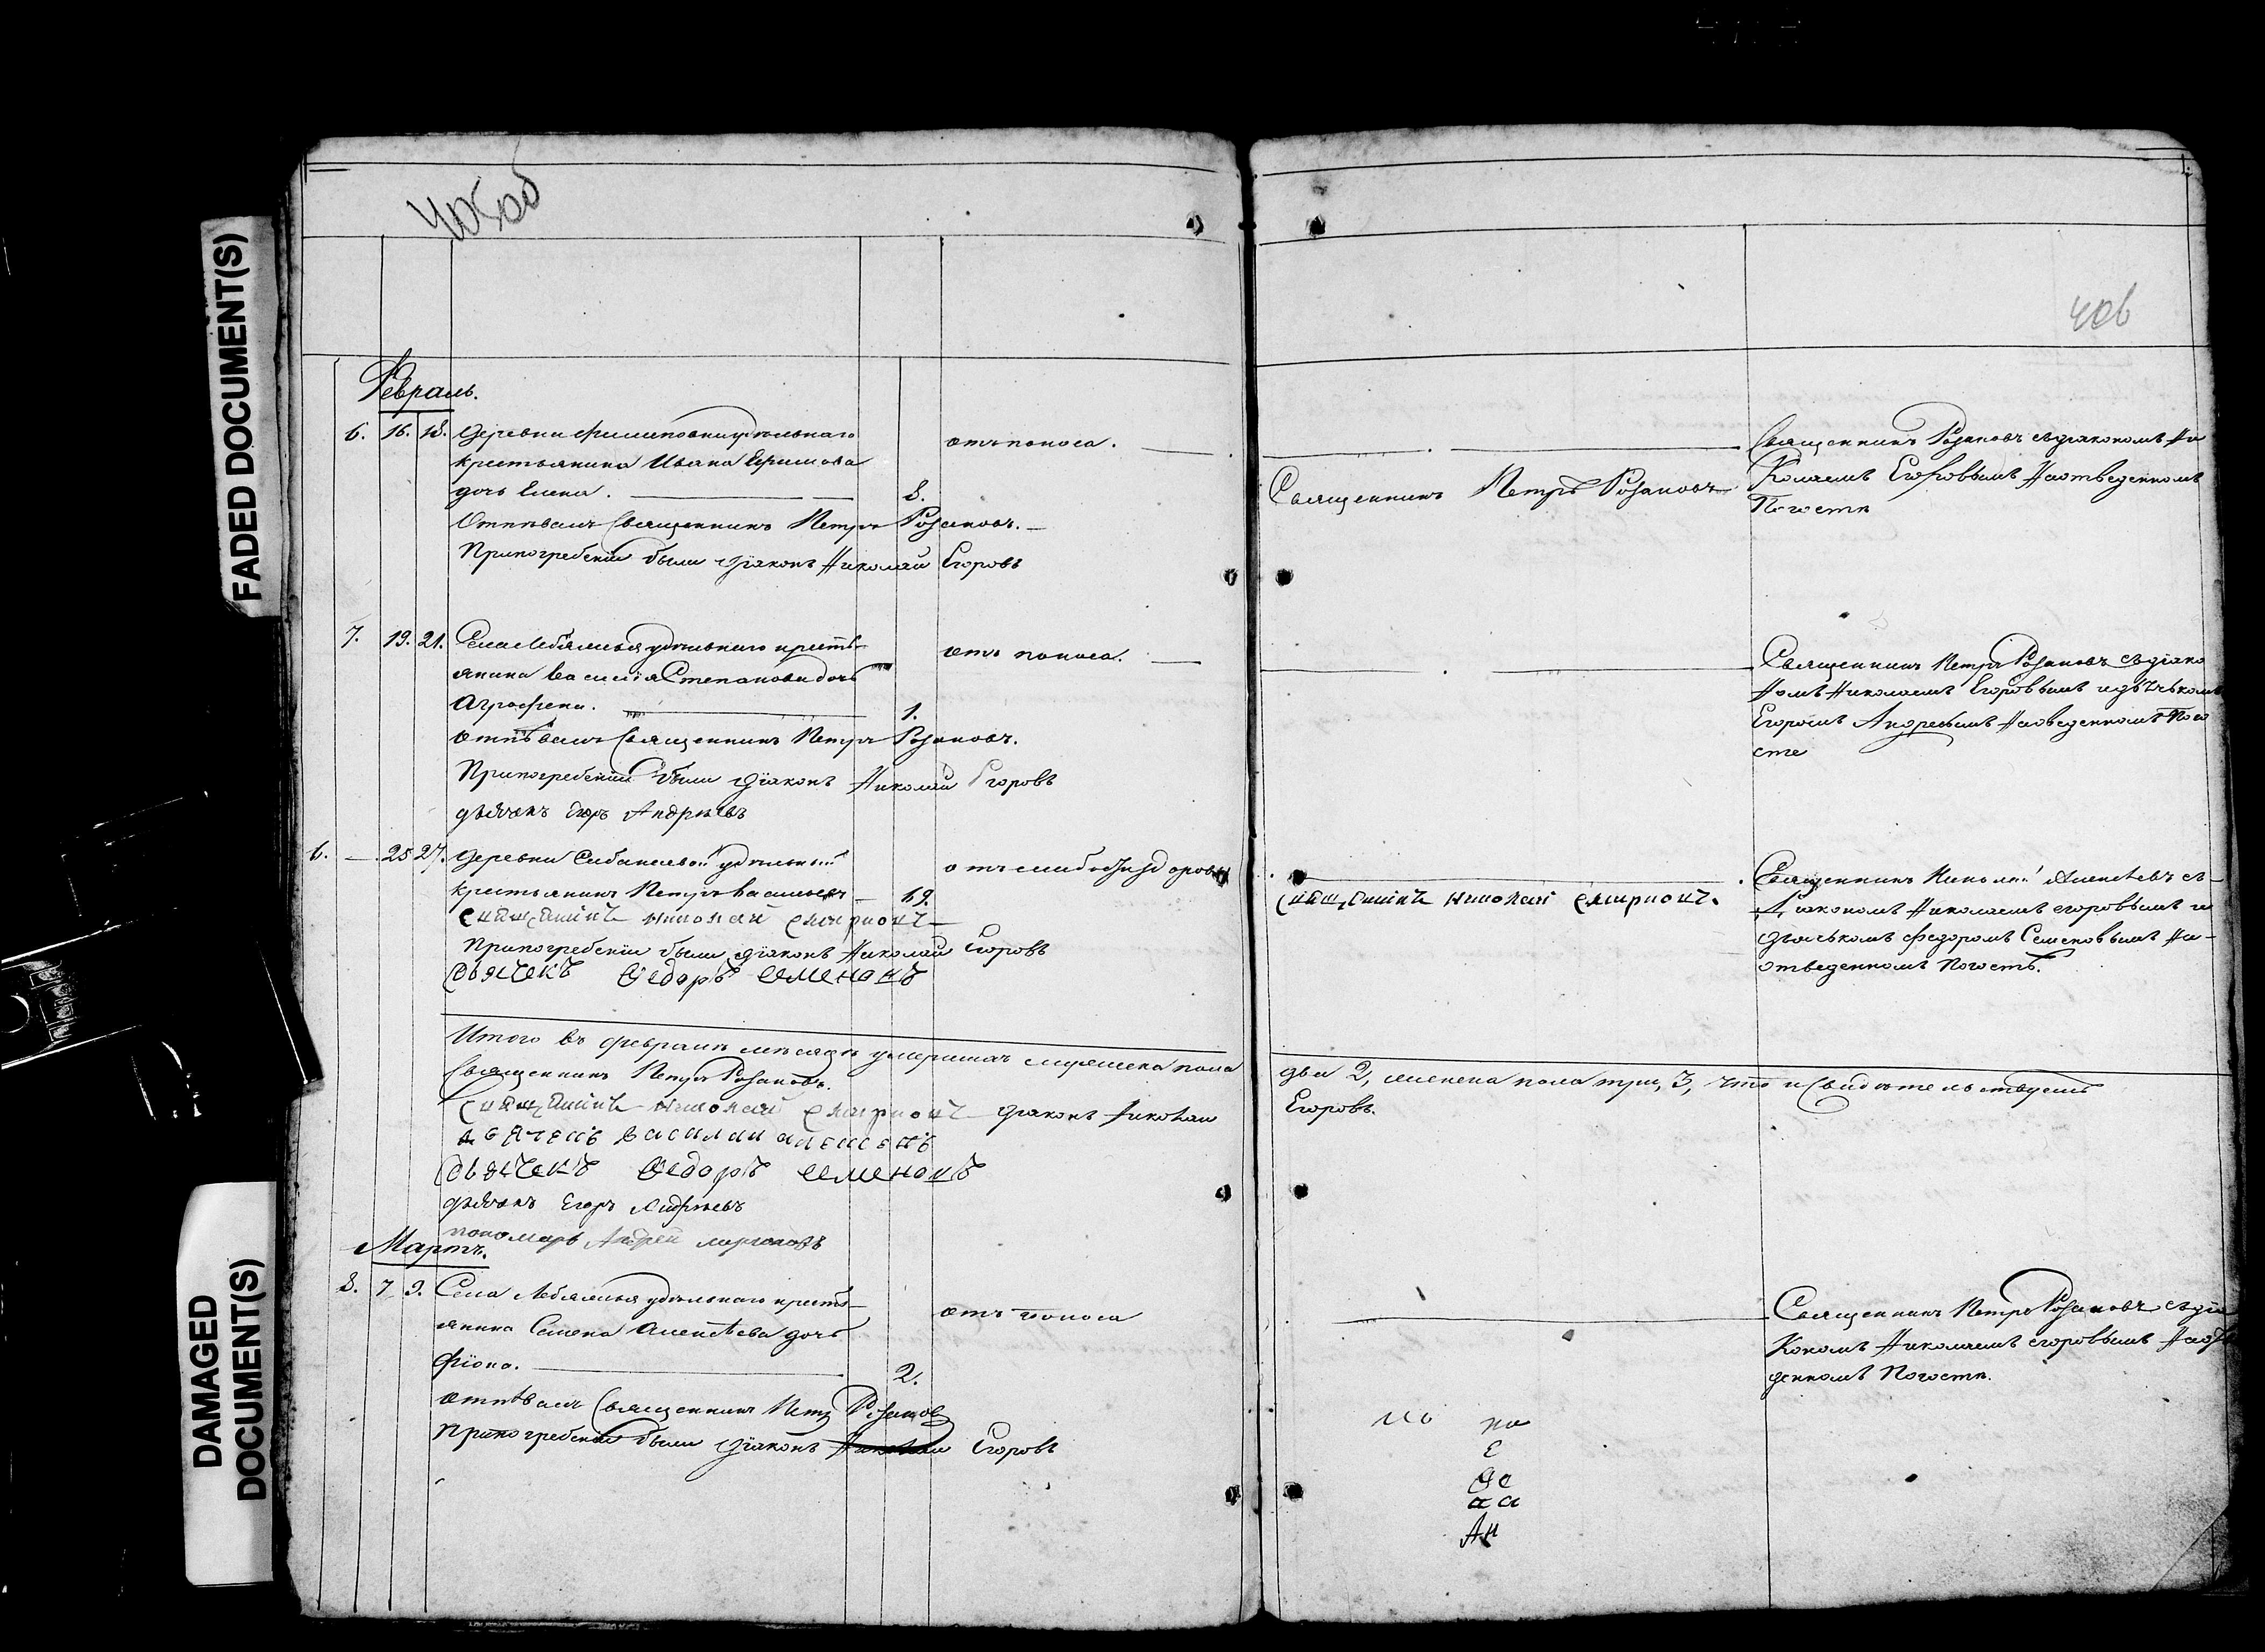 FADED DOCUMENT(S)
DAMAGED
DOCUMENT(S)
405об
406
Февраль.
6. 16. 18. Деревни Филиповки удѣльнаго
крестьянина Ивана Ефимова
дочь Елена. 8.
отъ поноса.
Отпѣвалъ Священникъ Петръ Розановъ.
При погребеніи были діаконъ Николай Егоровъ
Священникъ Петръ Розановъ
Священникъ Розановъ съ діакономъ Ни
колаемъ Егоровымъ На отведенномъ
Погостѣ
7. 19. 21. Села Лебяжья удѣльнаго кресть-
янина Василія Степанова дочь
Агрофена. 1.
отъ поноса.
отпѣвалъ Священникъ Петръ Розановъ.
При погребеніи были діаконъ Николай Егоровъ
дьячокъ Егоръ Андрѣевъ
Священникъ Петръ Розановъ съ діако
номъ Николаемъ Егоровымъ и дьячькомъ
Егоромъ Андревымъ На оведенномъ Пого
сте
6. — 25 27. Деревни удѣльный
крестьянинъ Петръ Васильевъ 69.
отъ
Священникъ Николай Смирновъ
При погребеніи были діаконъ Николай Егоровъ
Дьячекъ Федоръ Семеновъ
Священникъ Николай Смирновъ.
Священникъ Николай Алексѣевъ съ
Діакономъ Николаемъ Егоровымъ и
дьячькомъ Федоромъ Семеновымъ На
отведенномъ Погостѣ.
Итого въ февралѣ мѣсяцѣ умершихъ мужеска пола два 2, женска пола три, 3, что и свидѣтельствуемъ
Священникъ Петръ Розановъ.
Священникъ Николай Смирновъ діаконъ Николай Егоровъ.
дьячекъ Василий Алексевъ
Дьячекъ Федоръ Семеновъ
дьячокъ Егоръ Андрѣевъ
пономарь Андрей
Мартъ.
8. 7 9. Села Лебяжья удѣльнаго кресть-
янина Семена Алексѣева дочь
Фіона. 2.
отъ поноса
отпѣвалъ Священникъ Петръ Розановъ
При погребеніи были діаконъ Николай Егоровъ
Священникъ Петръ Розановъ съ діа
кономъ Николаемъ Егоровымъ На отве
денномъ Погостѣ.
по
Е
Фе
Ан